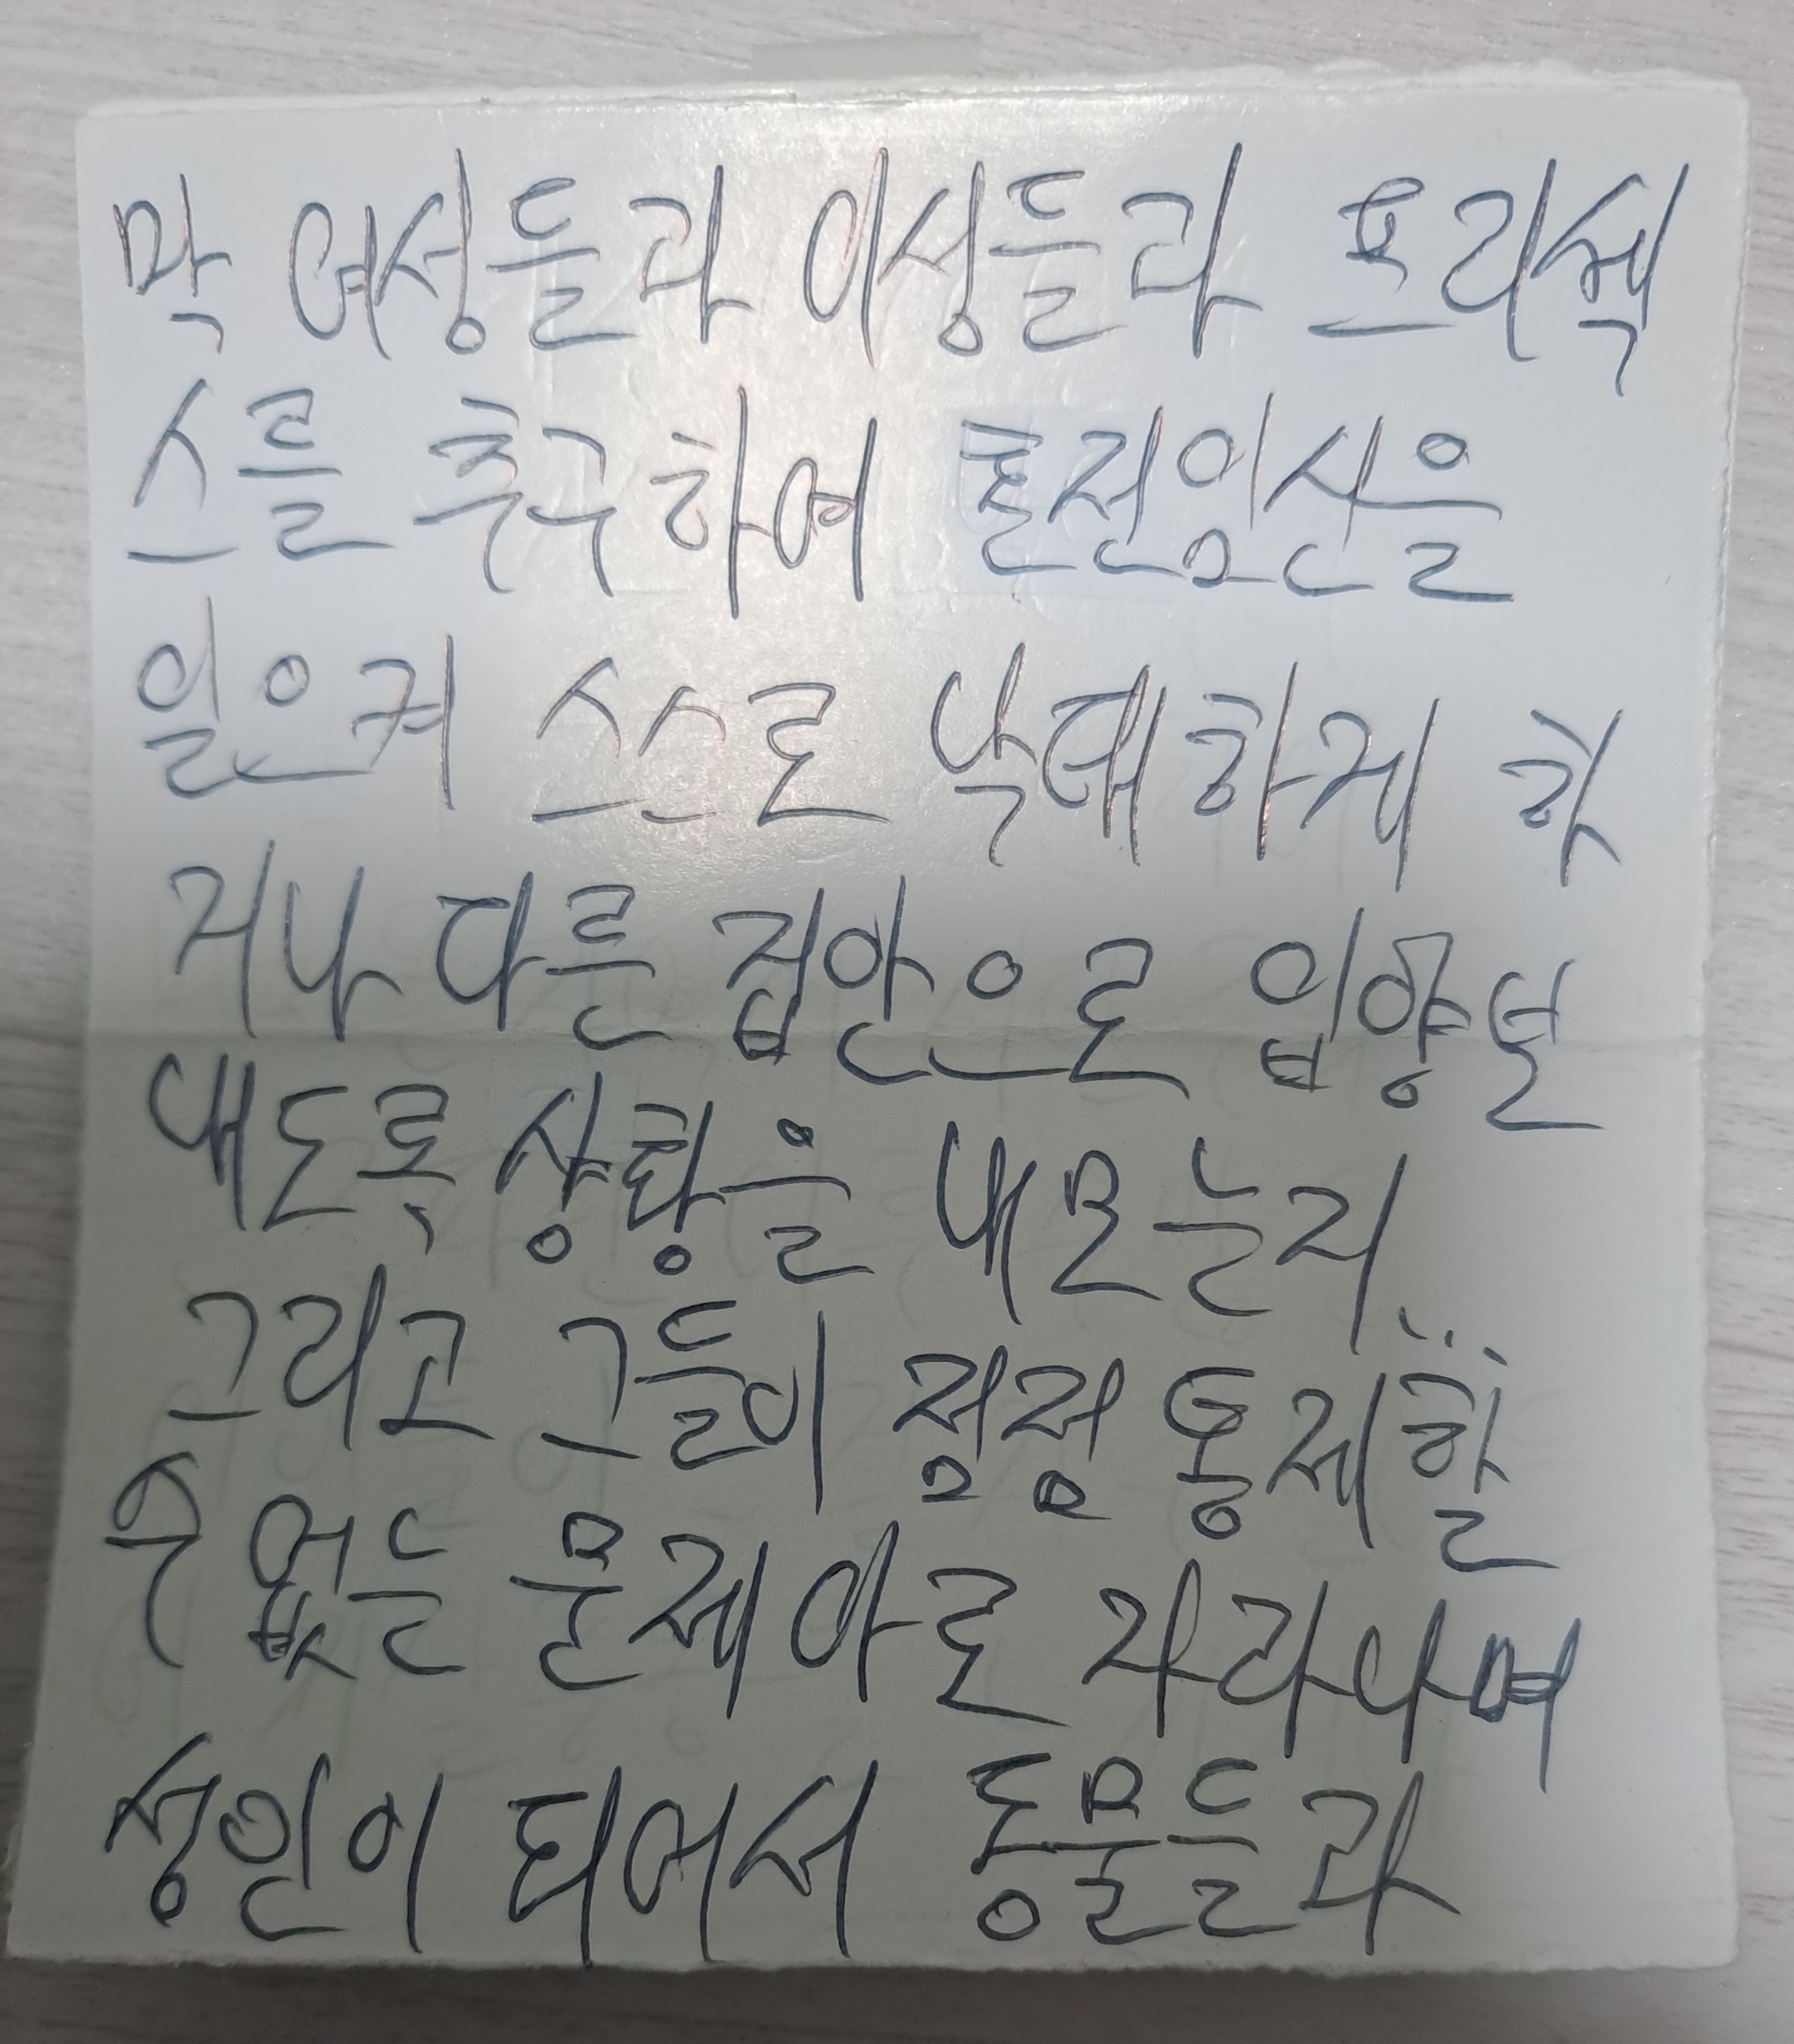 막 여성들과 이성들과 프리섹
스를 추구하여 혼전임신을
일으켜 스스로 낙태하게 하
거나 다른 집안으로 입양보
내도록 상황을 내모는지...
그리고 그들이 점점 통제할
수 없는 문제아로 자라나며
성인이 되어서 동물들과